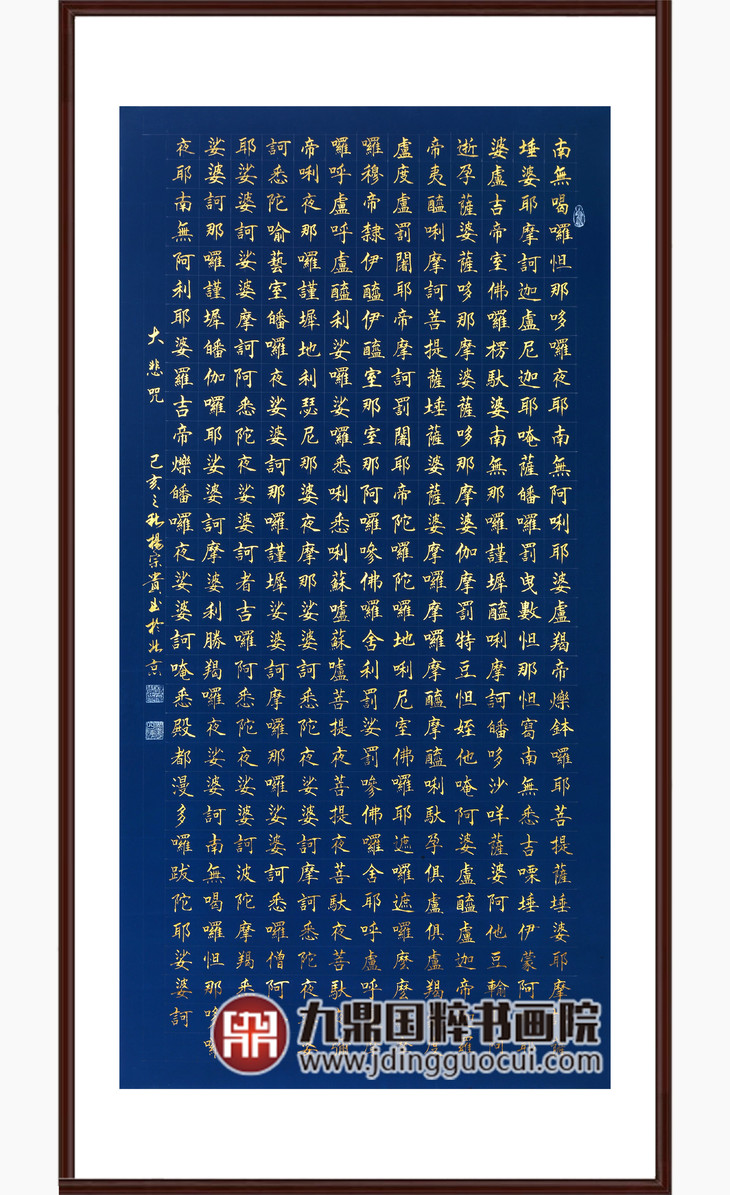 南無喝囉怛那哆囉夜耶南無阿唎耶婆盧羯帝爍鉢囉耶菩提薩埵婆耶摩
埵婆耶摩訶迦盧尼迦耶唵薩皤囉罰曳數怛那怛寫南無悉吉嘌埵伊蒙阿
婆盧吉帝室佛囉楞馱婆南無那囉謹墀醯唎摩訶皤哆沙咩薩婆阿他豆輸
逝孕薩婆薩哆那摩婆薩哆那摩婆伽摩罰特豆怛姪他唵阿婆盧醯盧迦帝
帝夷醯唎摩訶菩提薩埵薩婆薩婆摩囉摩囉摩醯摩醯唎馱孕俱盧俱盧羯
盧度盧罰闍耶帝摩訶罰闍耶帝陀囉陀囉地唎尼室佛囉耶遮囉遮囉麼麼
囉穆帝隸伊醯伊醯室那室那阿囉嘇佛囉舍利罰娑罰嘇佛囉舍耶呼盧呼
囉呼盧呼盧醯利娑囉娑囉悉唎悉唎蘇嚧蘇嚧菩提夜菩提夜菩馱夜菩馱
帝唎夜那囉謹墀地利瑟尼那婆夜摩那娑婆訶悉陀夜娑婆訶摩訶悉陀夜
訶悉陀喻藝室皤囉夜娑婆訶那囉謹墀娑婆訶摩囉那囉娑婆訶悉囉僧阿
耶娑婆訶娑婆摩訶阿悉陀夜娑婆訶者吉囉阿悉陀夜娑婆訶波陀摩羯悉
娑婆訶那囉謹墀皤伽囉耶娑婆訶摩婆利勝羯囉夜娑婆訶南無喝囉怛那哆囉
夜耶南無阿利耶婆羅吉帝爍皤囉夜娑婆訶唵悉殿都漫多囉跋陀耶娑婆訶
大悲咒 己亥之秋楊宗貴書於北京
九鼎国粹书画院
www.jdingguocui.com